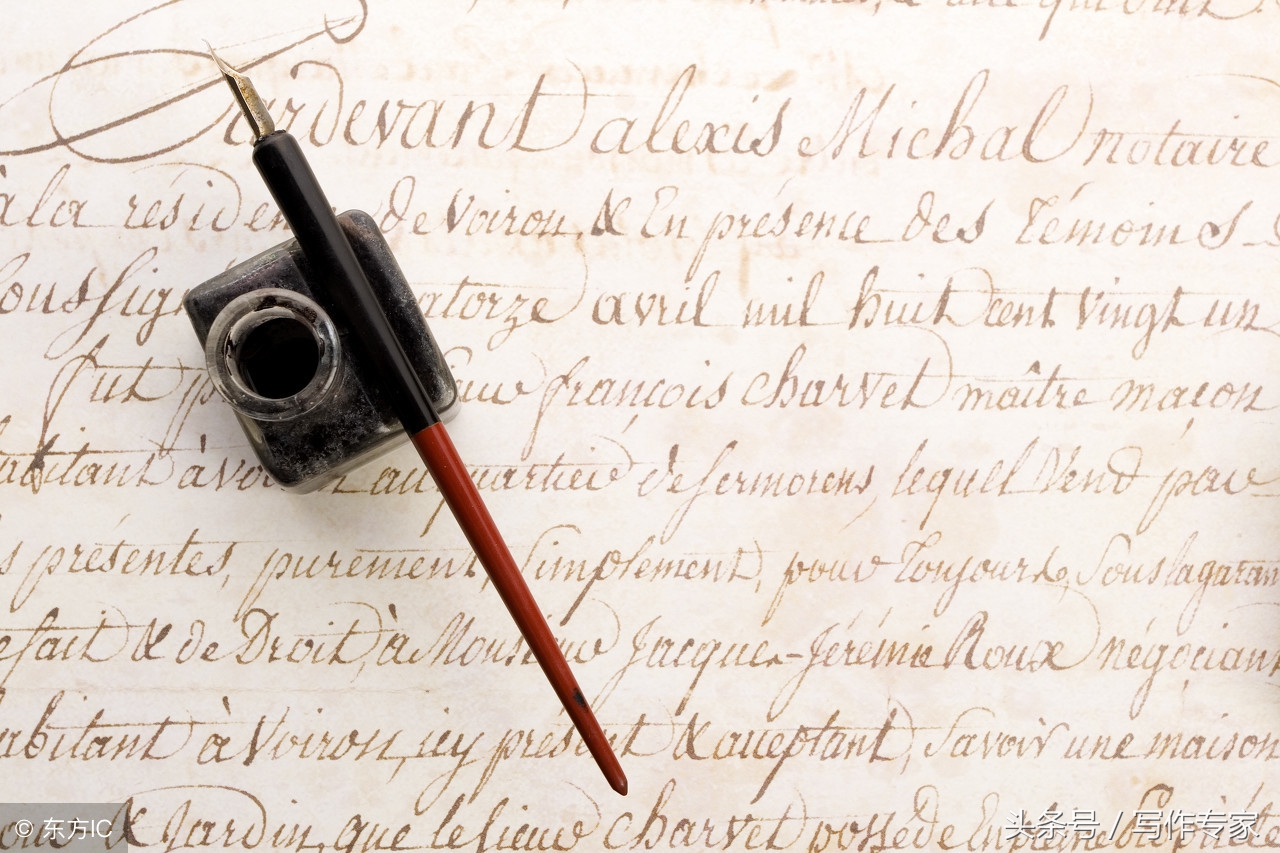 Pardevant alexis Michal notaire
à la résiden de Voiron & En présence des Témoins
Soussig atorze avril mil huit cent vingt un
fut françois charvet maître maçon
habitant à Voi au quartier de sermorens, lequel Vend par
s présentes, purement, simplement, pour Toujours, & Sous la garan
efait & de Droit, à Monsieur Jacques-Jérémie Roux négociant
abitant à Voiron, icy présent & acceptant, Savoir une maison
& Jardin, que le sieur charvet possède En
© 东方IC
头条号 / 写作专家